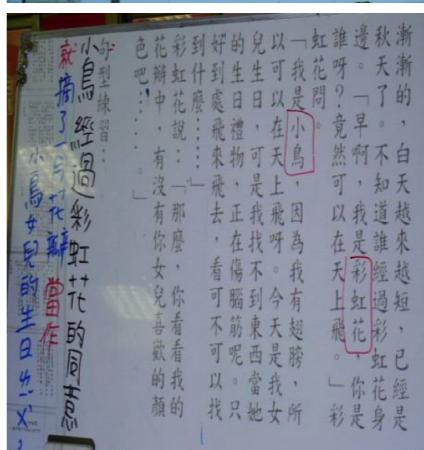 漸漸的,白天越來越短,已經是
秋天了。不知道誰經過彩虹花身
邊。「早啊,我是彩虹花,你是
誰呀?竟然可以在天上飛。」彩
虹花問。
「我是小鳥,因為我有翅膀,所
以可以在天上飛呀。今天是我女
兒生日,可是我找不到東西當她
的生日禮物,正在傷腦筋呢。只
好到處飛來飛去,看可不可以找
到什麼……」
彩虹花說:「那麼,你看看我的
花瓣中,有沒有你女兒喜歡的顏
色吧……。」
句型練習:
小鳥經過彩虹花的同意
就摘了一片花瓣當作
小鳥女兒的生日ㄌㄧˇㄨˋ,